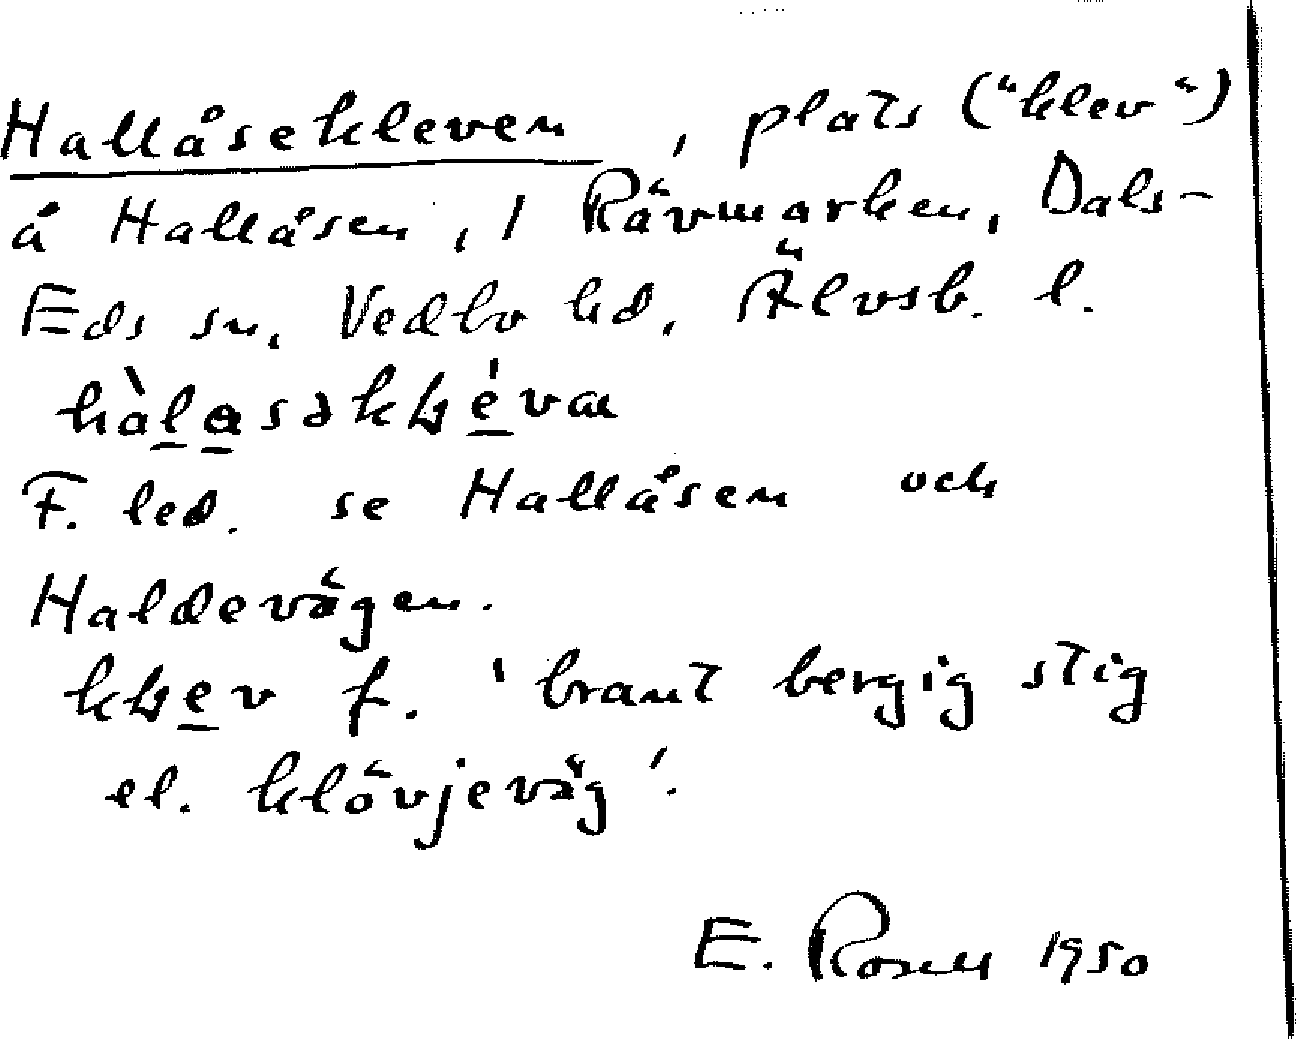 Hallåsekleven, plats ("klev")
å Hallåsen, i Rävmarken, Dals-
Eds sn, Vedbo hd, Älvsb. l.
F. led. se Hallåsen och
Haldevägen.
f. 'brant bergig stig
el. klövjeväg'.
E. Rosell 1950